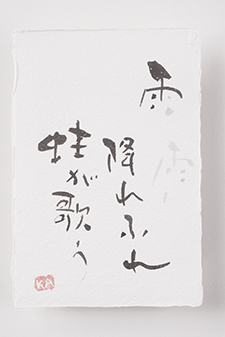 雨 雨
降れふれ
蛙が歌う
KA